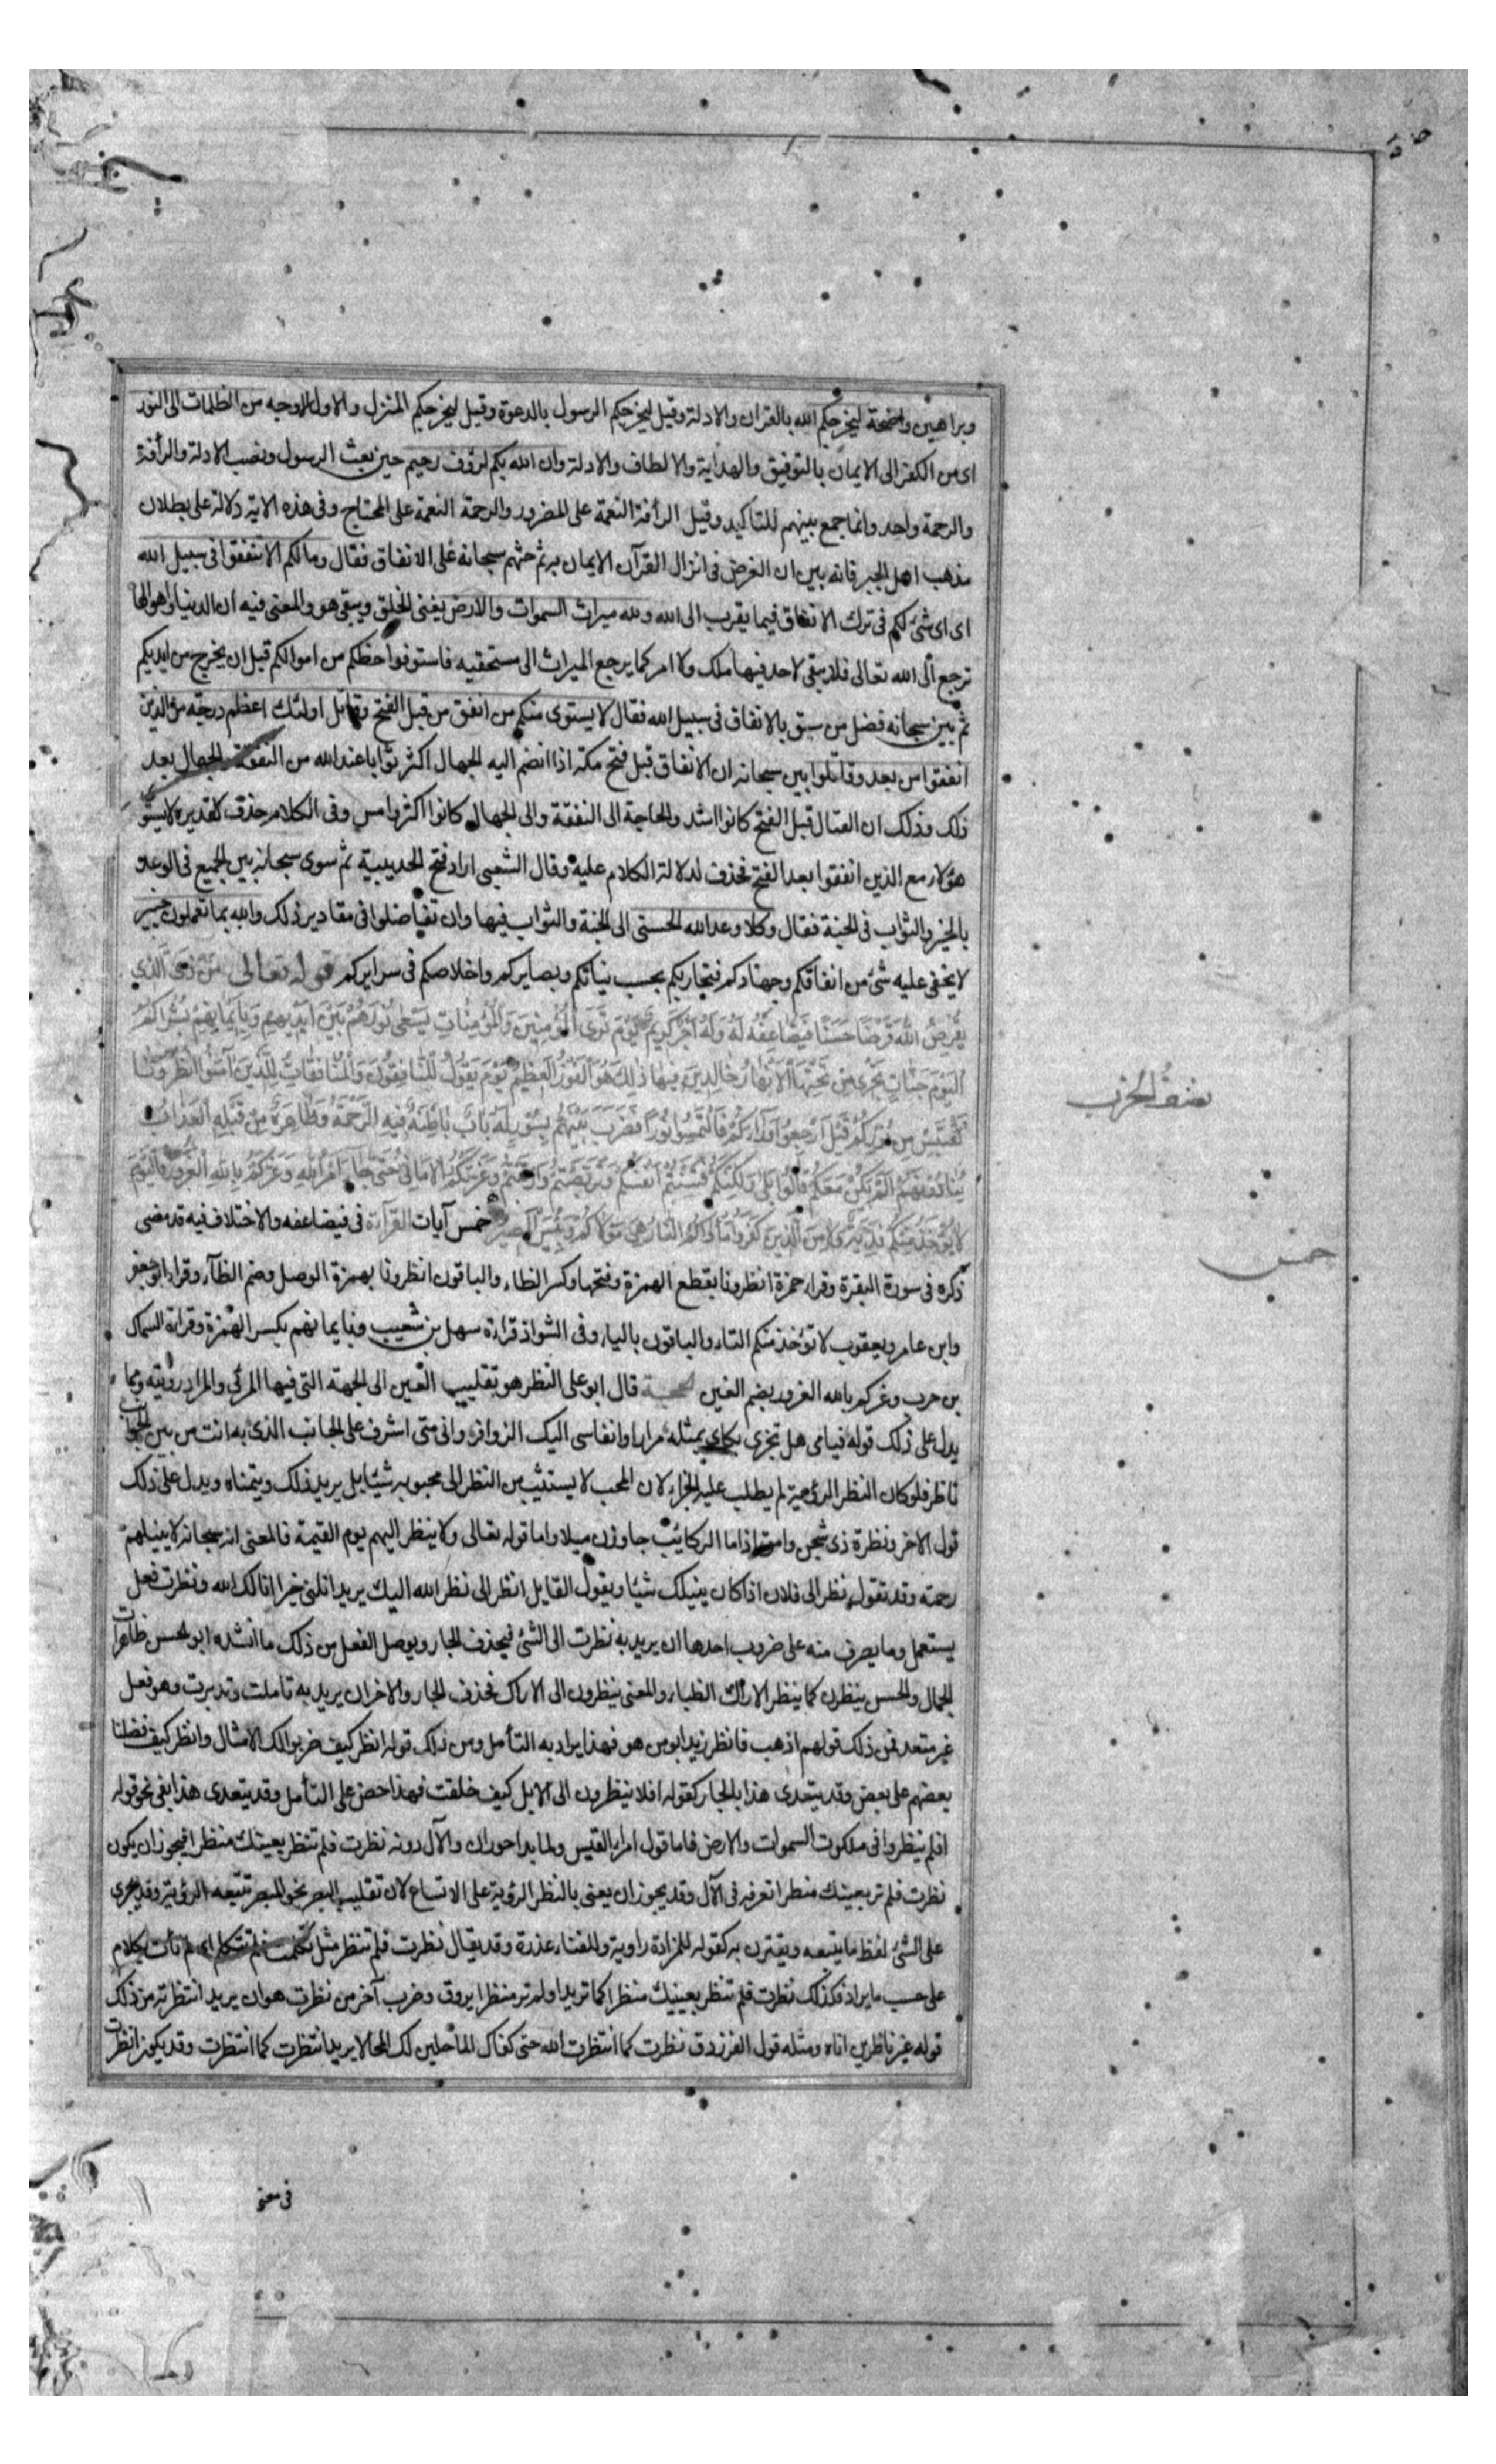 وبراهين واضحة ليخرجكم الله بالقران والادلة وقيل ليخرجكم الرسول بالدعوة وقيل ليخرجكم المنزل والاول الاوجه من الظلمات الى النور
اى من الكفر الى الايمان بالتوفيق والهداية والالطاف والادلة وان الله بكم لرؤف رحيم حين بعث الرسول ونصب الادلة والرأفة
والرحمة واحد وانما جمع بينهم للتاكيد وقيل الرأفة النعمة على المضرور والرحمة النعمة على المحتاج وفى هذه الاية دلالة على بطلان
مذهب اهل الجبر فانه بين ان الغرض فى انزال القرآن الايمان به ثم حثهم سبحانه على الانفاق فقال ومالكم الا تنفقوا فى سبيل الله
اى اى شئ لكم فى ترك الانفاق فيما يقرب الى الله ولله ميراث السموات والارض يفنى الخلق ويبقى هو والمعنى فيه ان الدنيا واموالها
ترجع الى الله تعالى فلا يبقى لاحد فيها ملك ولا امر كما يرجع الميراث الى مستحقيه فاستوفوا حظكم من اموالكم قبل ان يخرج من ايديكم
ثم بين سبحانه فضل من سبق بالانفاق فى سبيل الله فقال لا يستوى منكم من انفق من قبل الفتح وقاتل اولئك اعظم درجة من الذين
انفقوا من بعد وقاتلوا بين سبحانه ان الانفاق قبل فتح مكة اذا انضم اليه الجهال اكثر ثوابا عند الله من النفقة والجهال بعد
ذلك وذلك ان القتال قبل الفتح كانوا اشد والحاجة الى النفقة والى الجهال كانوا اكثر وامس وفى الكلام حذف تقديره لا يستوى
هؤلاء مع الذين انفقوا بعد الفتح فحذف لدلالة الكلام عليه وقال الشعبى اراد فتح الحديبية ثم سوى سبحانه بين الجميع فى الوعد
بالخير والثواب فى الجنة فقال وكلا وعد الله الحسنى الى الجنة والثواب فيها وان تفاضلوا فى مقادير ذلك والله بما تعملون خبير
لا يخفى عليه شئ من انفاقكم وجهادكم فيجازيكم بحسب نياتكم وبصايركم واخلاصكم فى سرايركم قوله تعالى مَنْ ذَا الَّذِي
يُقْرِضُ اللهَ قَرْضًا حَسَنًا فَيُضَاعِفَهُ لَهُ وَلَهُ اَجْرٌ كَرِيمٌ يَوْمَ تَرَى الْمُؤْمِنِينَ وَالْمُؤْمِنَاتِ يَسْعَى نُورُهُمْ بَيْنَ اَيْدِيهِمْ وَبِاَيْمَانِهِمْ بُشْرَاكُمُ
الْيَوْمَ جَنَّاتٌ تَجْرِى مِنْ تَحْتِهَا الْاَنْهَارُ خَالِدِينَ فِيهَا ذٰلِكَ هُوَ الْفَوْزُ الْعَظِيمُ يَوْمَ يَقُولُ الْمُنَافِقُونَ وَالْمُنَافِقَاتُ لِلَّذِينَ آمَنُوا انْظُرُونَا
نَقْتَبِسْ مِنْ نُورِكُمْ قِيلَ ارْجِعُوا وَرَاءَكُمْ فَالْتَمِسُوا نُورًا فَضُرِبَ بَيْنَهُمْ بِسُورٍ لَهُ بَابٌ بَاطِنُهُ فِيهِ الرَّحْمَةُ وَظَاهِرُهُ مِنْ قِبَلِهِ الْعَذَابُ
يُنَادُونَهُمْ اَلَمْ نَكُنْ مَعَكُمْ قَالُوا بَلَى وَلٰكِنَّكُمْ فَتَنْتُمْ اَنْفُسَكُمْ وَتَرَبَّصْتُمْ وَارْتَبْتُمْ وَغَرَّتْكُمُ الْاَمَانِىُّ حَتَّى جَاءَ اَمْرُ اللهِ وَغَرَّكُمْ بِاللهِ الْغَرُورُ فَالْيَوْمَ
لَا يُؤْخَذُ مِنْكُمْ فِدْيَةٌ وَلَا مِنَ الَّذِينَ كَفَرُوا مَاْوَاكُمُ النَّارُ هِىَ مَوْلَاكُمْ وَبِئْسَ الْمَصِيرُ خمس آيات القرآءة فى فيضاعفه والاختلاف فيه قد مضى
ذكره فى سورة البقرة وقراء حمزة انظرونا بقطع الهمزة وفتحها وكسر الظاء والباقون انظرونا بهمزة الوصل وضم الظآء وقراء ابو جعفر
وابن عامر ويعقوب لا تؤخذ منكم التاء والباقون بالياء وفى الشواذ قراءة سهل بن شعيب وبايمانهم بكسر الهمزة وقراءة السماك
بن حرب وغركم بالله الغرور بضم الغين الحجة قال ابو على النظر هو تقليب العين الى الجهة التى فيها المرئى والمراد رؤيته ومما
يدل على ذلك قوله فيامى هل تجزى بكاى بمثله مرارا وانفاسى اليك الزوافر وانى متى اشرف على الجانب الذى به انت من بين الجوانب
ناظر فلو كان النظر الرؤية لم يطلب عليه الجزاء لان المحب لا يستثيب من النظر الى محبوبه شيئا بل يريد ذلك ويتمناه ويدل على ذلك
قول الاخر ونظرة ذى شجن وامق اذا ما الركائب جاوزن ميلا واما قوله تعالى ولا ينظر اليهم يوم القيمة فالمعنى انه سبحانه لا ينيلهم
رحمته وقد تقول نظر الى فلان اذا كان ينيلك شيئا ويقول القايل انظر الى نظر الله اليك يريد انلنى خيرا انالك الله ونظرت فعل
يستعمل وما يصرف منه على ضروب احدها ان يريد به نظرت الى الشئ فيحذف الجار ويوصل الفعل من ذلك ما انشده ابو الحسن ظاهرات
الجمال والحسن ينظرن كما ينظر الاراك الظباء والمعنى ينظرون الى الاراك فحذف الجار والاخر ان يريد به تاملت وتدبرت وهو فعل
غير متعد فمن ذلك قولهم اذهب فانظر زيد ابو من هو فهذا يراد به التأمل ومن ذلك قوله انظر كيف ضربوا لك الامثال وانظر كيف فضلنا
بعضهم على بعض وقد يتعدى هذا بالجار كقوله افلا ينظرون الى الابل كيف خلقت فهذا حض على التأمل وقد يتعدى هذا بفى نحو قوله
افلم ينظروا فى ملكوت السموات والارض فاما قول امراء القيس ولما بدا حوران والآل دونه نظرت فلم تنظر بعينك منظرا فيجوز ان يكون
نظرت فلم تر بعينك منظرا تعرفه فى الآل وقد يجوز ان يعنى بالنظر الرؤية على الاتساع لان تقليب البصر نحو المبصر تتبعه الرؤية وقد يجرى
على الشئ لفظ ما يتبعه ويقترن به كقوله للمزادة راوية وللفناء عذرة وقد يقال نظرت فلم تنظر مثل تكلمت فلم تتكلم اى لم تأت بكلام
على حسب ما يراد فكذلك نظرت فلم تنظر بعينيك منظرا كما تريد او لم تر منظرا يروق وضرب آخر من نظرت هو ان يريد انتظرته من ذلك
قوله غير ناظرين اناه ومثله قول الفرزدق نظرت كما انتظرت الله حتى كفاك الماحلين لك المحالا يريد انتظرت كما انتظرت وقد يكون انظرت
فى معنى
نصف الحزب
خمس